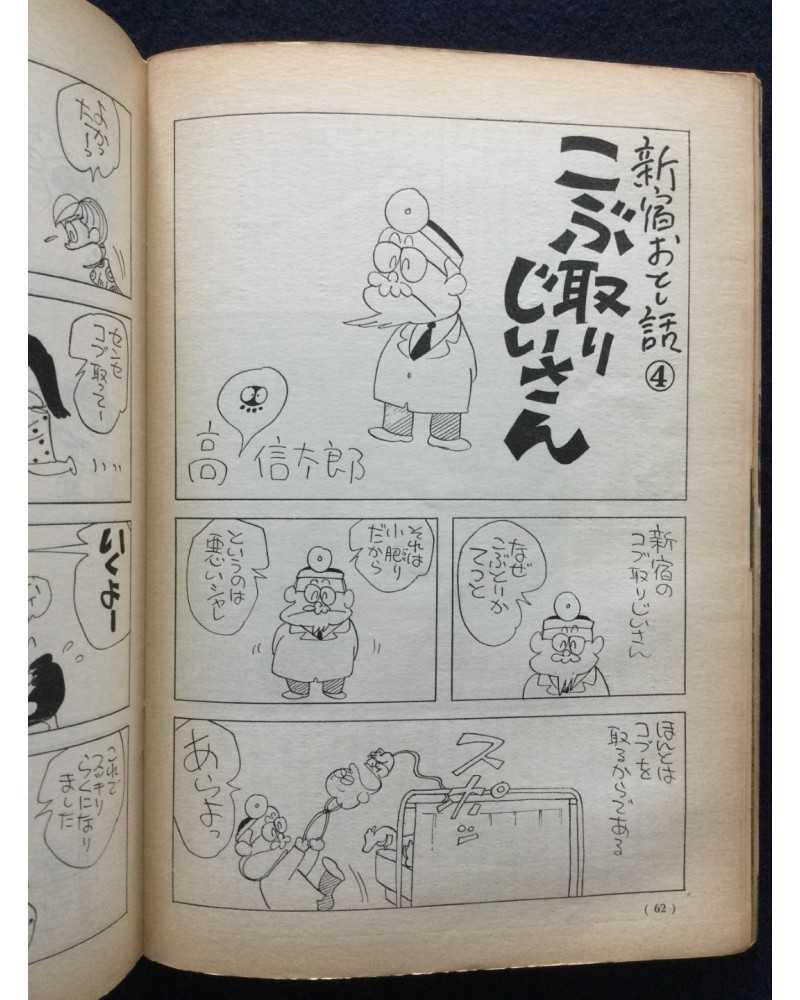 新宿おとし話④
こぶ取り
じいさん
高信太郎
新宿の
コブ取りじいさん
なぜ
こぶとりか
てっと
それは
小肥り
だから
というのは
悪いシャレ
ほんとは
コブを
取るからである。
スポッ
あらよっ
( 62 )
よかっ
たーっ
センセ
コブ取ってー
いくよー
これで
スッキリ
らくになり
ました